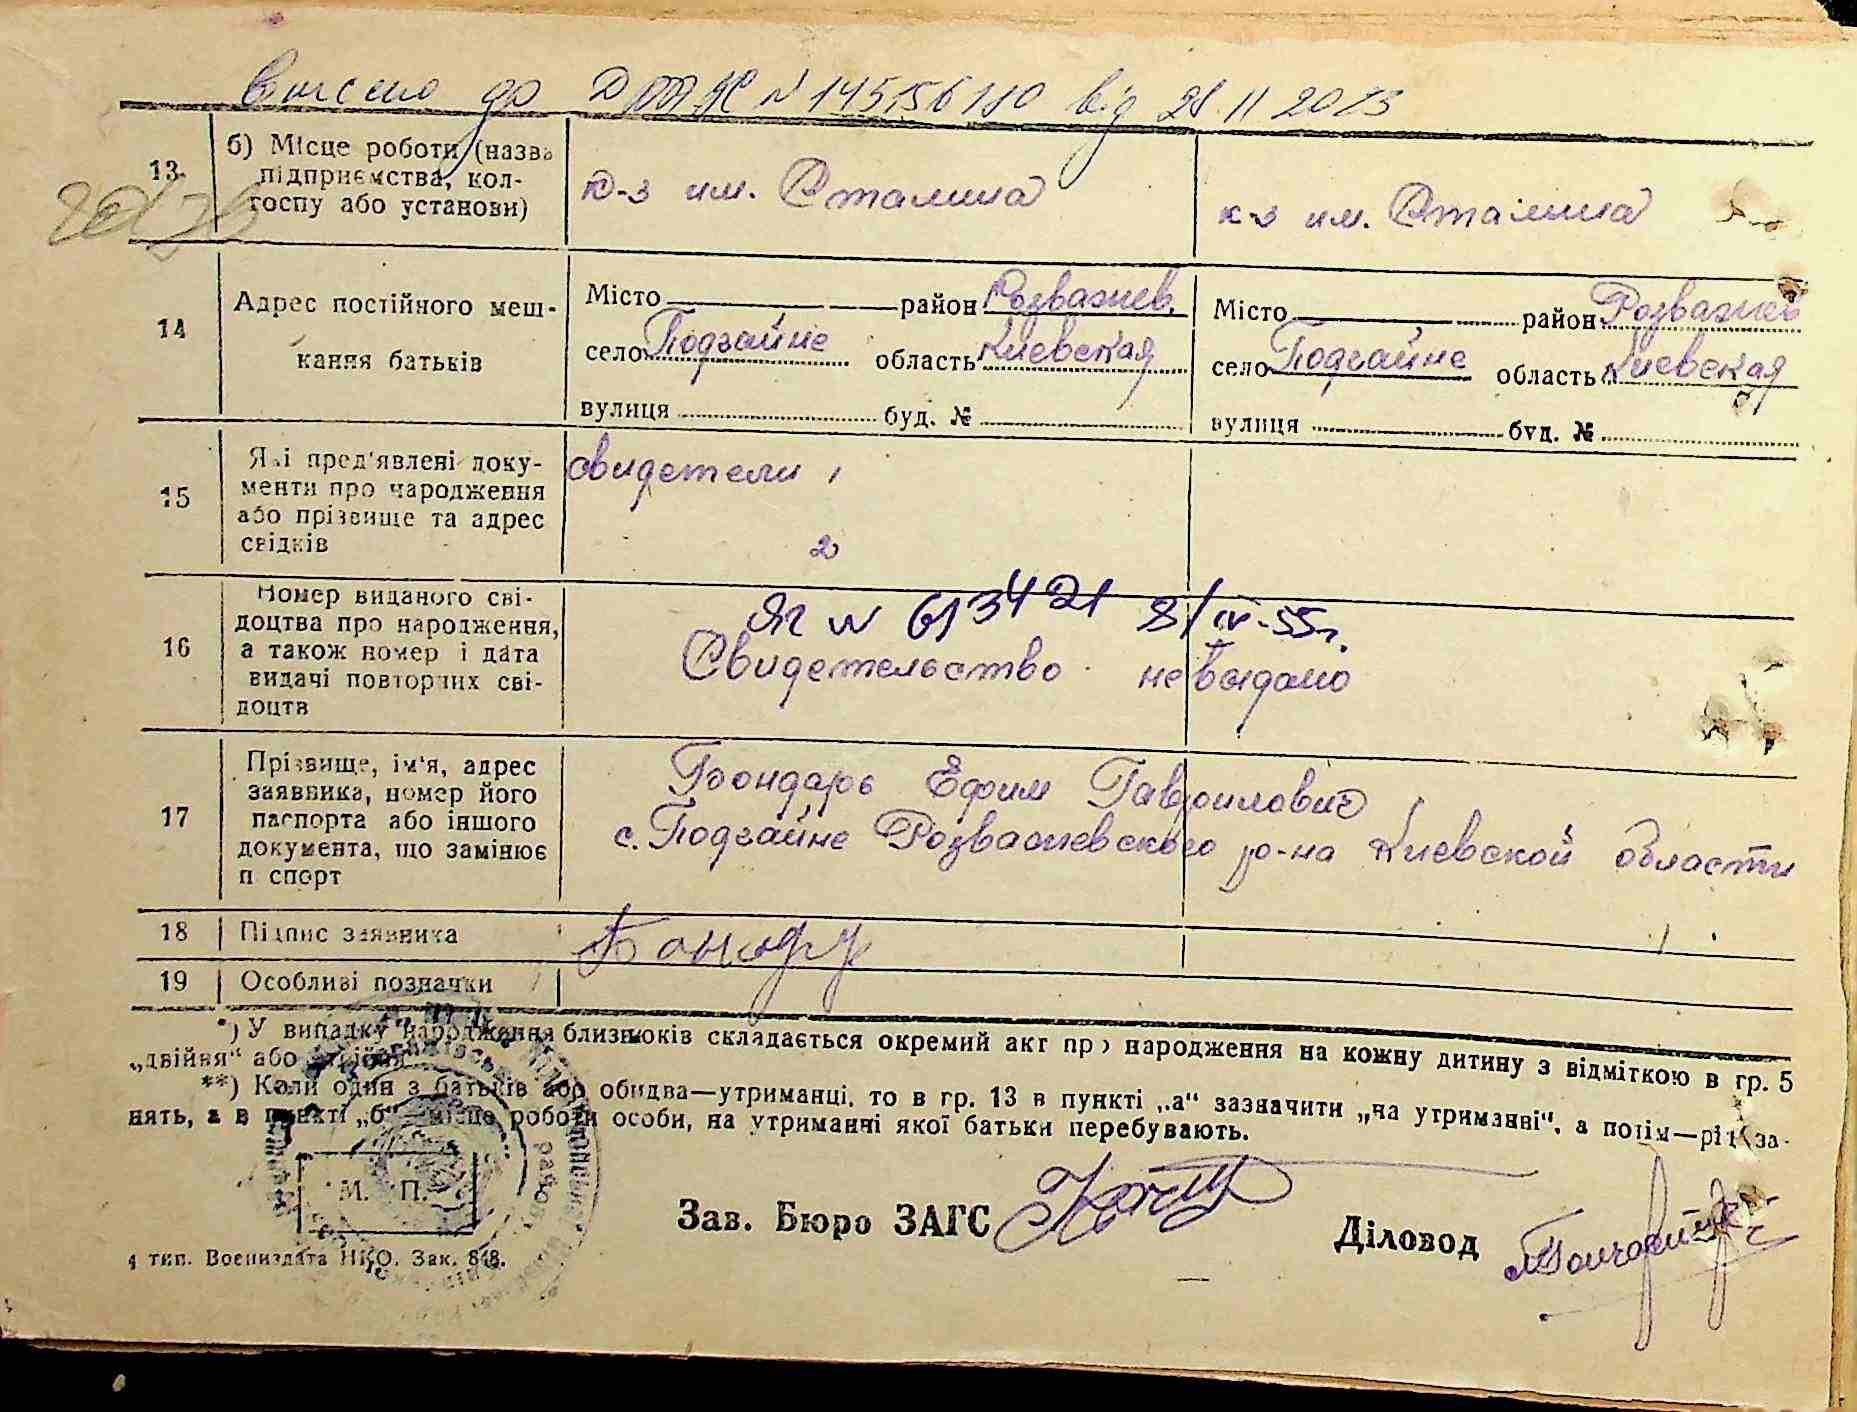 Внесено до ДРАЦС № 145156180 від 28.11 2013
13. б) Місце роботи (назва підприємства, колгоспу або установи)
к-з им. Сталина
к-з им. Сталина
14 Адрес постійного меш-
кання батьків
Місто район Розважев.
село Подгайне область Киевская
вулиця буд. №
Місто район Розважев
село Подгайне область Киевская
вулиця буд. №
15 Які пред'явлені доку-
менти про народження
або прізвище та адрес
свідків
свидетели 1
2
16 Номер виданого сві-
доцтва про народження,
а також номер і дата
видачі повторних сві-
доцтв
№ 613421 8/IV-55г.
Свидетельство не выдано
17 Прізвище, ім'я, адрес
заявника, номер його
паспорта або іншого
документа, що замінює
п спорт
Бондарь Ефим Гаврилович
с. Подгайне Розважевского р-на Киевской области
18 Підпис заявника
19 Особливі позначки
*) У випадку народження близнюків складається окремий акт про народження на кожну дитину з відміткою в гр. 5
„двійня“ або „трійня“
**) Коли один з батьків або обидва—утриманці, то в гр. 13 в пункті „а“ зазначити „на утриманні“, а потім—рід за-
нять, а в пункті „б“—місце роботи особи, на утриманні якої батьки перебувають.
М. П.
Зав. Бюро ЗАГС
Діловод
4 тип. Воениздата НКО. Зак. 848.